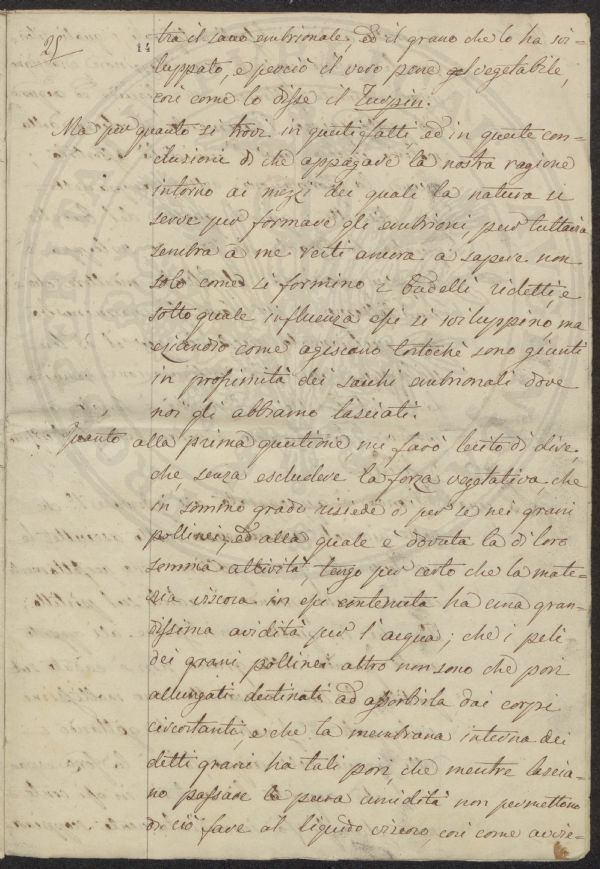 25
14
trà il sacco embrionale, ed il grano che lo ha svi-
luppato, e perciò il vero pene del vegetabile,
così come lo disse il Turpin.
Ma per quanto si trovi in questi fatti, ed in queste con-
clusioni di che appagare la nostra ragione
intorno ai mezzi dei quali la natura si
serve per formare gli embrioni, però tuttavia
sembra a me resti ancora a sapere non
solo come si formino i budelli ridetti, e
sotto quale influenza essi si sviluppino ma
eziandio come agiscano tostochè sono giunti
in prossimità dei sacchi embrionali dove
noi gli abbiamo lasciati.
Quanto alla prima questione mi farò lecito di dire,
che, senza escludere la forza vegetativa, che
in sommo grado risiede di per se nei grani
pollinei, ed alla quale è dovuta la di loro
somma attività, tengo per certo che la mate-
ria viscosa in essi contenuta ha una gran-
dissima avidità per l'acqua; che i peli
dei grani pollinei altro non sono che pori
allungati destinati ad assorbirla dai corpi
circostanti, e che la membrana interna dei
detti grani ha tali pori, che mentre lascia-
no passare la pura umidità non permettono
di ciò fare al liquido viscoso, così come avvie-